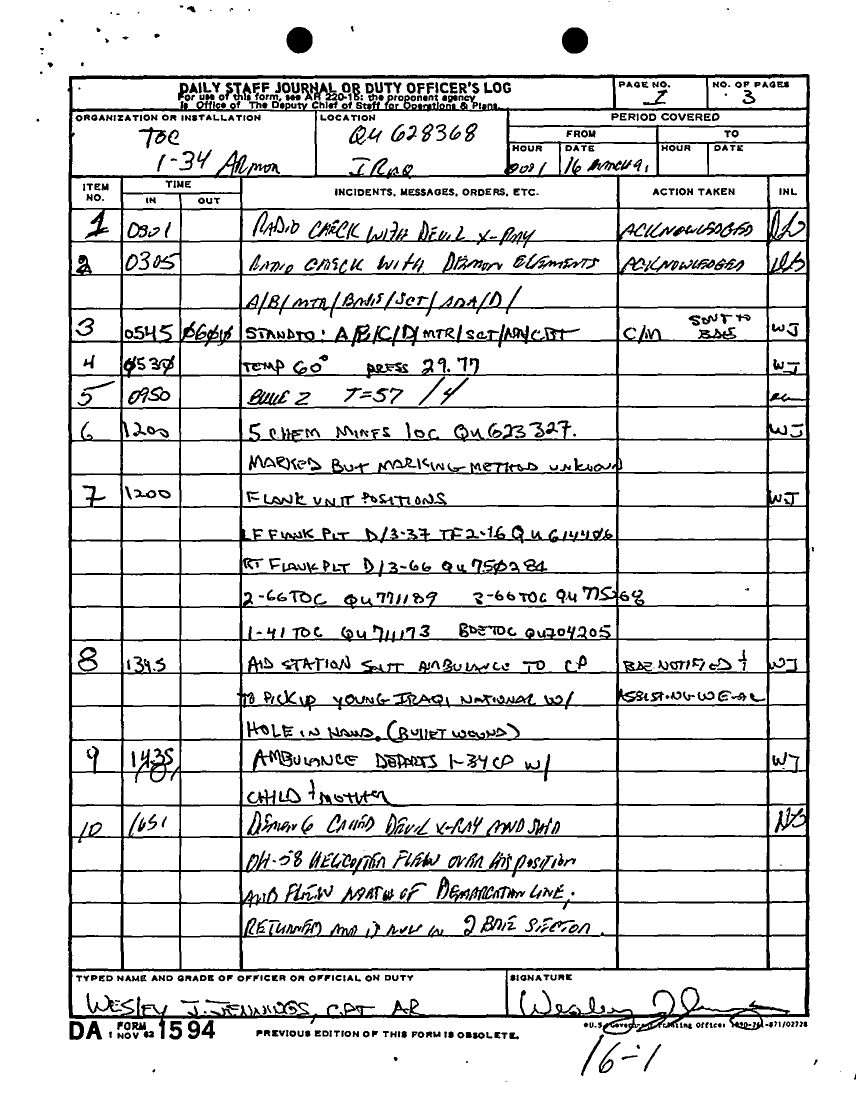 DAILY STAFF JOURNAL OR DUTY OFFICER'S LOG
For use of this form, see AR 220-15; the proponent agency
is Office of The Deputy Chief of Staff for Operations & Plans.
PAGE NO.
1
NO. OF PAGES
3
ORGANIZATION OR INSTALLATION
TOC
1-34 ARMOR
LOCATION
QU 628368
IRAQ
PERIOD COVERED
FROM TO
HOUR DATE HOUR DATE
0001 16 MARCH 91
ITEM NO. TIME INCIDENTS, MESSAGES, ORDERS, ETC. ACTION TAKEN INL
IN OUT
1 0301 RADIO CHECK WITH DEVIL X-RAY ACKNOWLEDGED
2 0305 RADIO CHECK WITH DEMON ELEMENTS ACKNOWLEDGED
A/B/MTR/ /SCT/ADA/D/
3 0545 0600 STANDTO: A/B/C/D/MTR/SCT/ C/M SENT TO BDE WJ
4 0530 TEMP 60° PRESS 29.77 WJ
5 0950 BLUE 2 T=57 /4
6 1200 5 CHEM MINES loc QU623327. WJ
MARKED BUT MARKING METHOD UNKNOWN
7 1200 FLANK UNIT POSITIONS WJ
LF FLANK PLT D/3-37 TF2-16 QU614406
RT FLANK PLT D/3-66 QU750284
2-66 TOC QU771189 3-66 TOC QU775268
1-41 TOC QU711173 BDE TOC QU204205
8 1345 AID STATION SENT AMBULANCE TO CP BDE NOTIFIED & WJ
TO PICK UP YOUNG IRAQI NATIONAL W/
HOLE IN HAND. (BULLET WOUND)
9 1435 AMBULANCE DEPARTS 1-34 CP W/ WJ
CHILD & MOTHER
10 1651 DEMON 6 CALLED DEVIL X-RAY AND SAID
OH-58 HELICOPTER FLEW OVER HIS POSITION
AND FLEW NORTH OF DEMARCATION LINE;
RETURNED AND IS NOW IN 2 BDE SECTOR.
TYPED NAME AND GRADE OF OFFICER OR OFFICIAL ON DUTY
WESLEY J. JENNINGS, CPT AR
SIGNATURE
Wesley J Jennings
DA FORM 1594
1 NOV 62
PREVIOUS EDITION OF THIS FORM IS OBSOLETE.
*U.S. Government Printing Office: 1990-261-871/02728
16-1